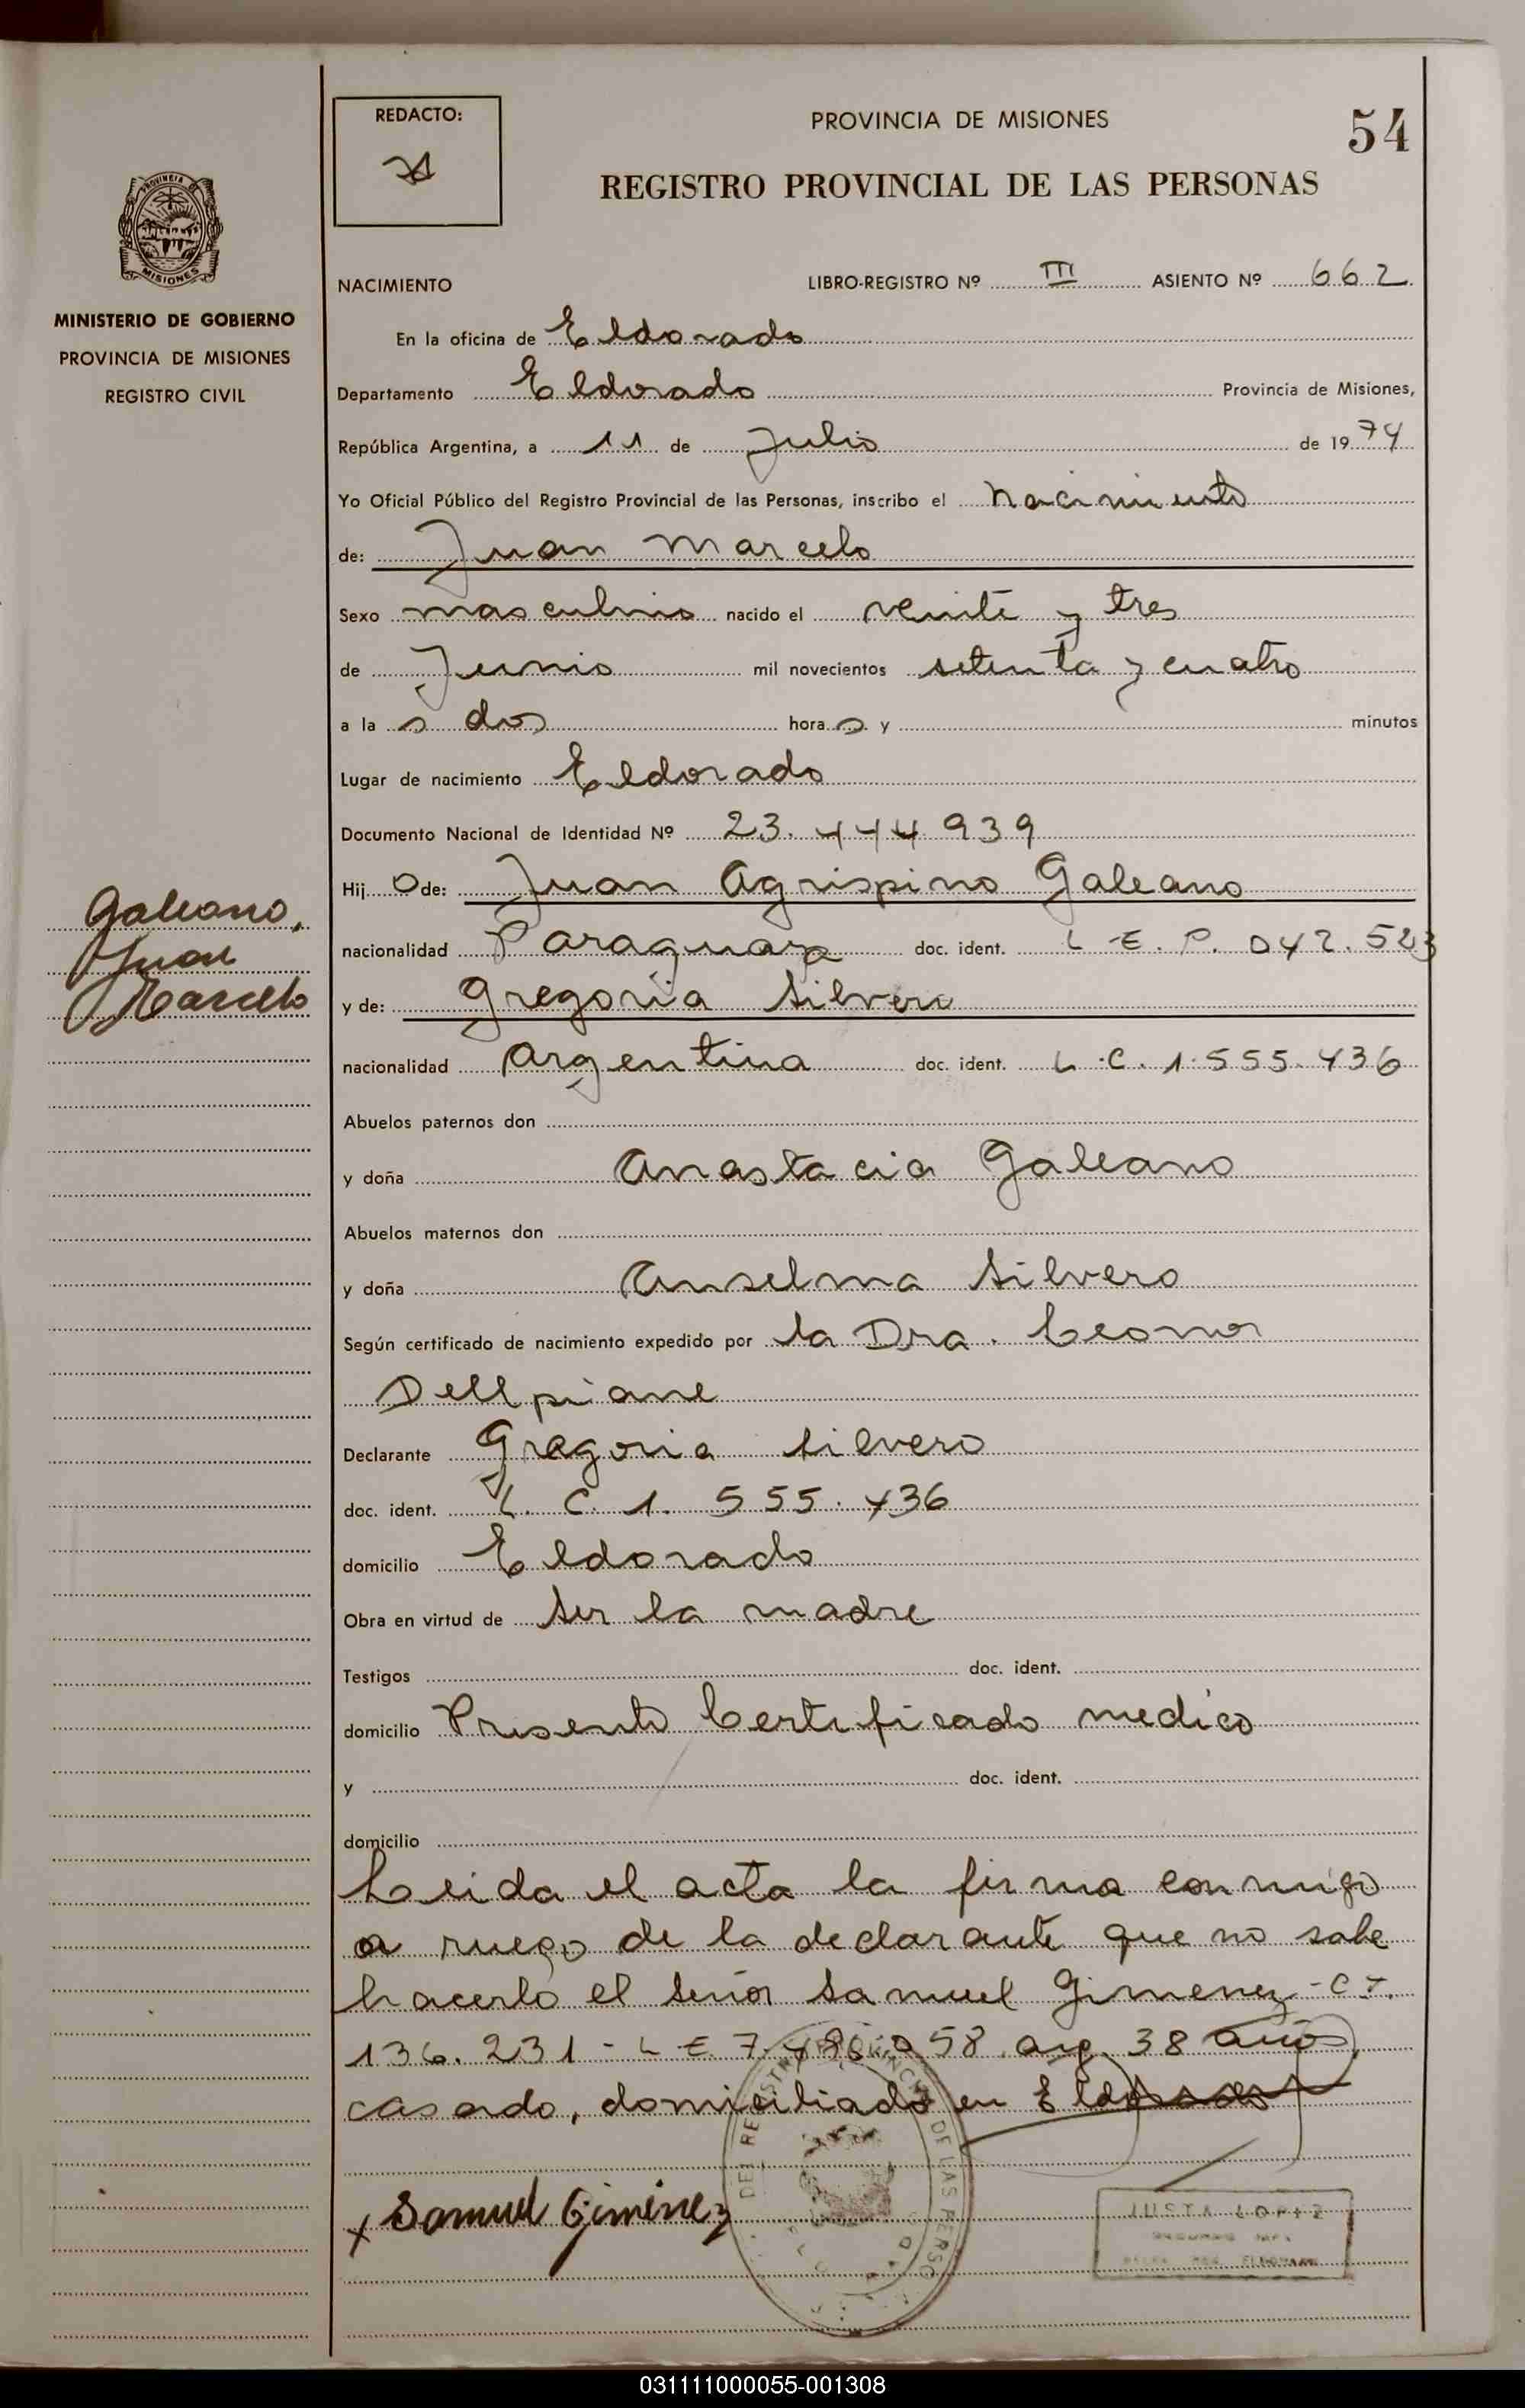 REDACTO:
PROVINCIA DE MISIONES
54
REGISTRO PROVINCIAL DE LAS PERSONAS
PROVINCIA DE
MISIONES
MINISTERIO DE GOBIERNO
PROVINCIA DE MISIONES
REGISTRO CIVIL
NACIMIENTO LIBRO-REGISTRO Nº III ASIENTO Nº 662
En la oficina de Eldorado
Departamento Eldorado Provincia de Misiones,
República Argentina, a 11 de Julio de 1974
Yo Oficial Público del Registro Provincial de las Personas, inscribo el nacimiento
de: Juan Marcelo
Sexo masculino nacido el veinte y tres
de Junio mil novecientos setenta y cuatro
a la s dos hora s y minutos
Lugar de nacimiento Eldorado
Documento Nacional de Identidad Nº 23.444.939
Hij o de: Juan Agrispino Galeano
nacionalidad Paraguaya doc. ident. L.E.P. 042.523
y de: Gregoria Silvero
nacionalidad Argentina doc. ident. L.C. 1.555.436
Abuelos paternos don
y doña Anastacia Galeano
Abuelos maternos don
y doña Anselma Silvero
Según certificado de nacimiento expedido por la Dra. Leonor
Dellpiane
Declarante Gregoria Silvero
doc. ident. L.C. 1.555.436
domicilio Eldorado
Obra en virtud de ser la madre
Testigos doc. ident.
domicilio Presento Certificado médico
y doc. ident.
domicilio
Leida el acta la firma conmigo
a ruego de la declarante que no sabe
hacerlo el señor Samuel Gimenez - C I.
136.231 - L E 7.486.058 arg. 38 años,
casado, domiciliado en Eldorado
x Samuel Gimenez
DEL REGISTRO PROVINCIAL DE LAS PERSO
JUSTA LOPEZ
Galeano,
Juan
Marcelo
031111000055-001308